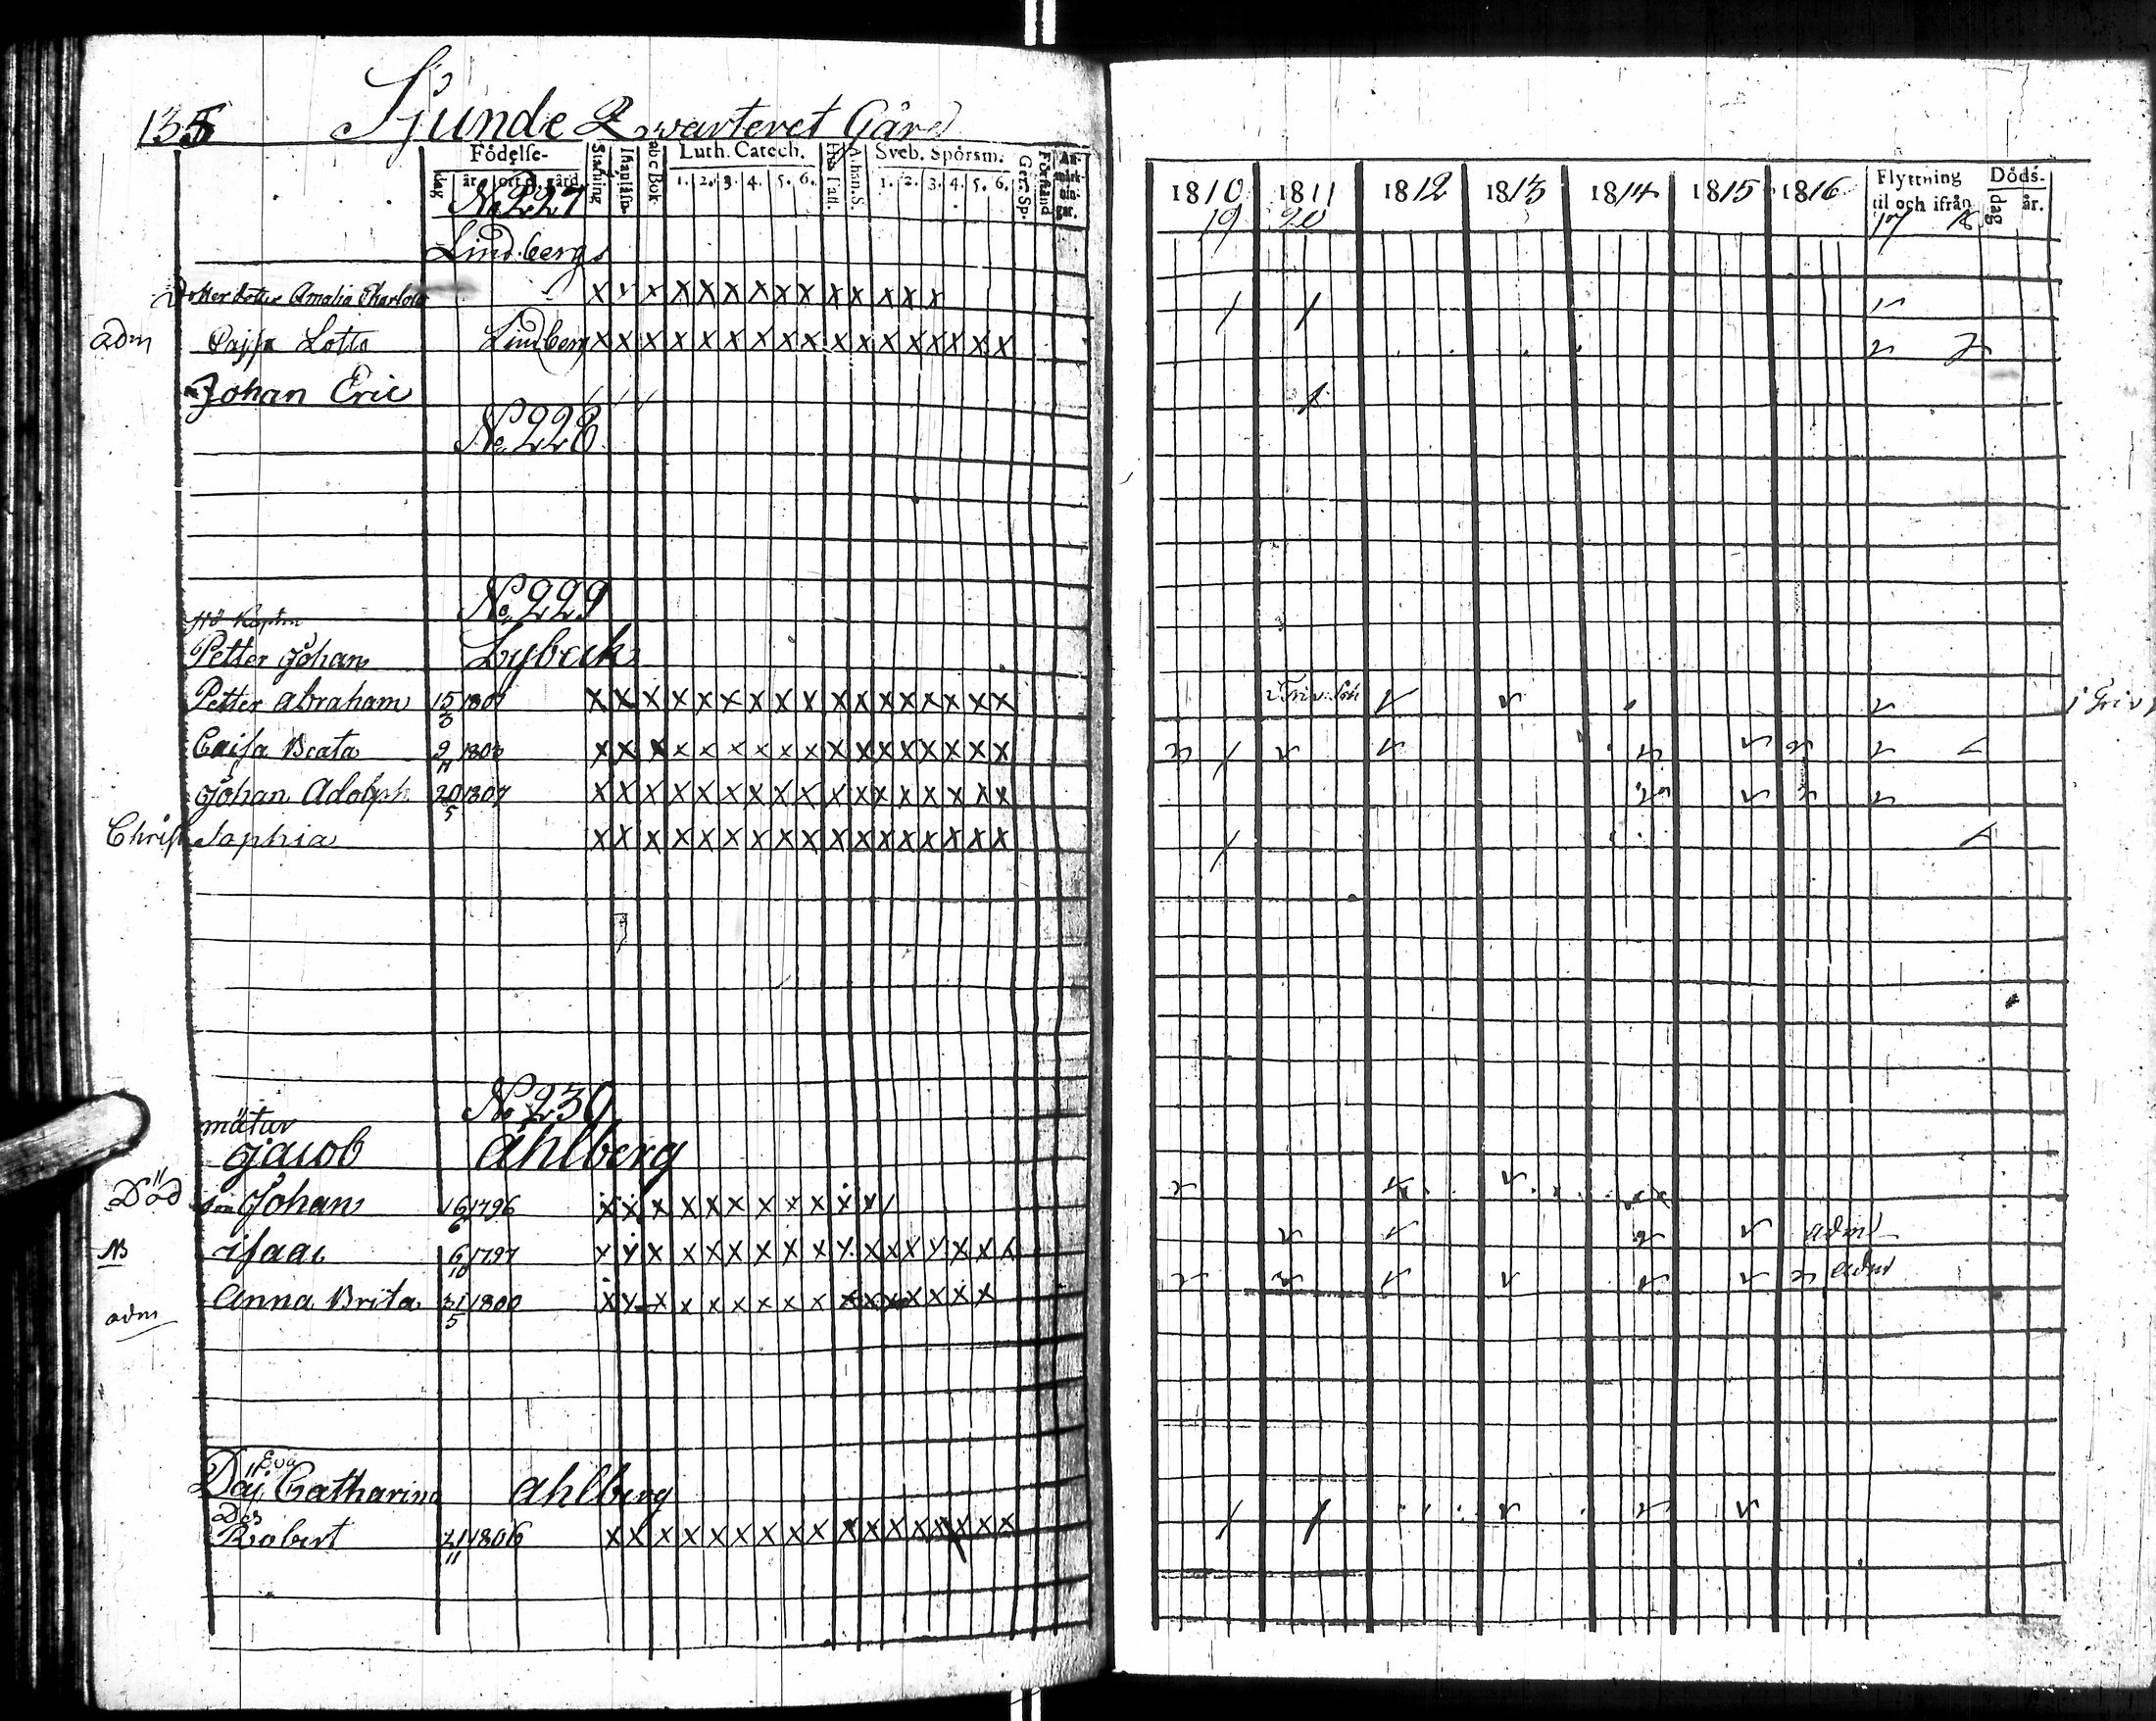 135 Sjunde Qvarteret Gård
Födelse- Stafning Luth. Catech. Sveb. Spörsm. Ger. Sp. Förstånd An-märk-nin-gar.
dag år ort gård abc Bok 1. 2. 3. 4. 5. 6. 1. 2. 3. 4. 5. 6.
No 227
Lindbergs
Dotter dotter Amalia Charlotta
adm Cajsa Lotta Lindberg
Johan Eric
No 228
No 229
Petter Johan Lybeck
Petter Abraham 15/3 1801
Caisa Beata 9/11 1803
Johan Adolph 20/5 1807
Christ Sophia
No 230
mätar
Jacob Åhlberg
Död son Johan 16/6 1796
NB Isaac 6/10 1797
adm Anna Brita 31/5 1800
Eva
Catharina Ahlberg
Robert 21/11 1806
1810 1811 1812 1813 1814 1815 1816 Flyttning til och ifrån Döds- dag år.
19 20 17 18
i Triv. Sch
i Triv
adm
adm